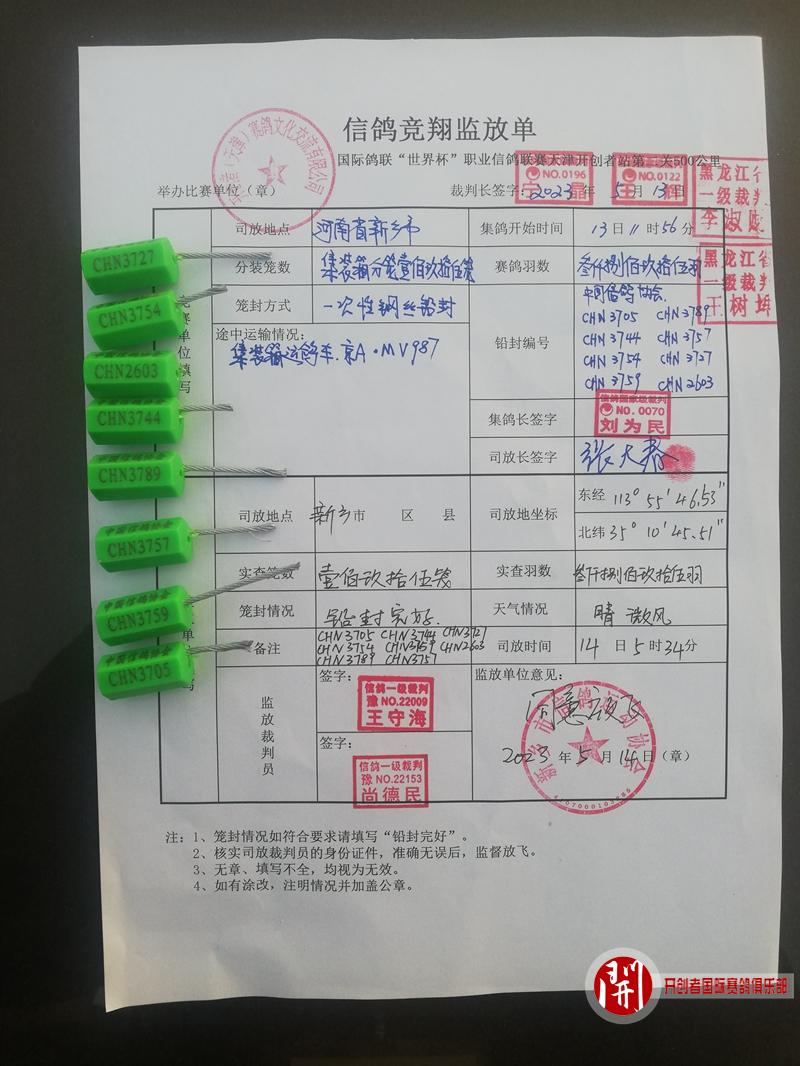 信鸽竞翔监放单
国际鸽联“世界杯”职业信鸽联赛天津开创者站第二关500公里
举办比赛单位（章） 裁判长签字： 2023年5月13日
（天津）赛鸽文化交流有限公司
NO.0196
NO.0122
黑龙江省
一级裁判
李淑
黑龙江省
一级裁判
王树
司放地点 河南省新乡市 集鸽开始时间 13日11时56分
分装笼数 集装箱分笼壹佰玖拾伍笼 赛鸽羽数 叁仟捌佰玖拾伍羽
笼封方式 一次性钢丝铅封 铅封编号 中国信鸽协会.
CHN3705 CHN3789
CHN3744 CHN3757
CHN3754 CHN3727
CHN3759 CHN2603
途中运输情况：
集装箱运鸽车.京A·MV987
赛单位填写
集鸽长签字 信鸽国家级裁判
NO.0070
刘为民
司放长签字 张大春
司放地点 新乡市 区 县 司放地坐标 东经 113°55′46.53″
北纬 35°10′45.51″
实查笼数 壹佰玖拾伍笼 实查羽数 叁仟捌佰玖拾伍羽
笼封情况 铅封完好. 天气情况 晴 微风
备注 CHN3705 CHN3744 CHN3727
CHN3754 CHN3759 CHN2603
CHN3789 CHN3757
司放时间 14日5时34分
监放裁判员 签字：
信鸽一级裁判
豫NO.22009
王守海
签字：
信鸽一级裁判
豫NO.22153
尚德民
监放单位意见：
同意放飞
2023年5月14日（章）
新乡市信鸽运动协会
注：1、笼封情况如符合要求请填写“铅封完好”。
2、核实司放裁判员的身份证件，准确无误后，监督放飞。
3、无章、填写不全，均视为无效。
4、如有涂改，注明情况并加盖公章。
CHN3727
CHN3754
CHN2603
CHN3744
中国信鸽协会
CHN3789
中国信鸽协会
CHN3757
中国信鸽协会
CHN3759
中国信鸽协会
CHN3705
開 开创者国际赛鸽俱乐部